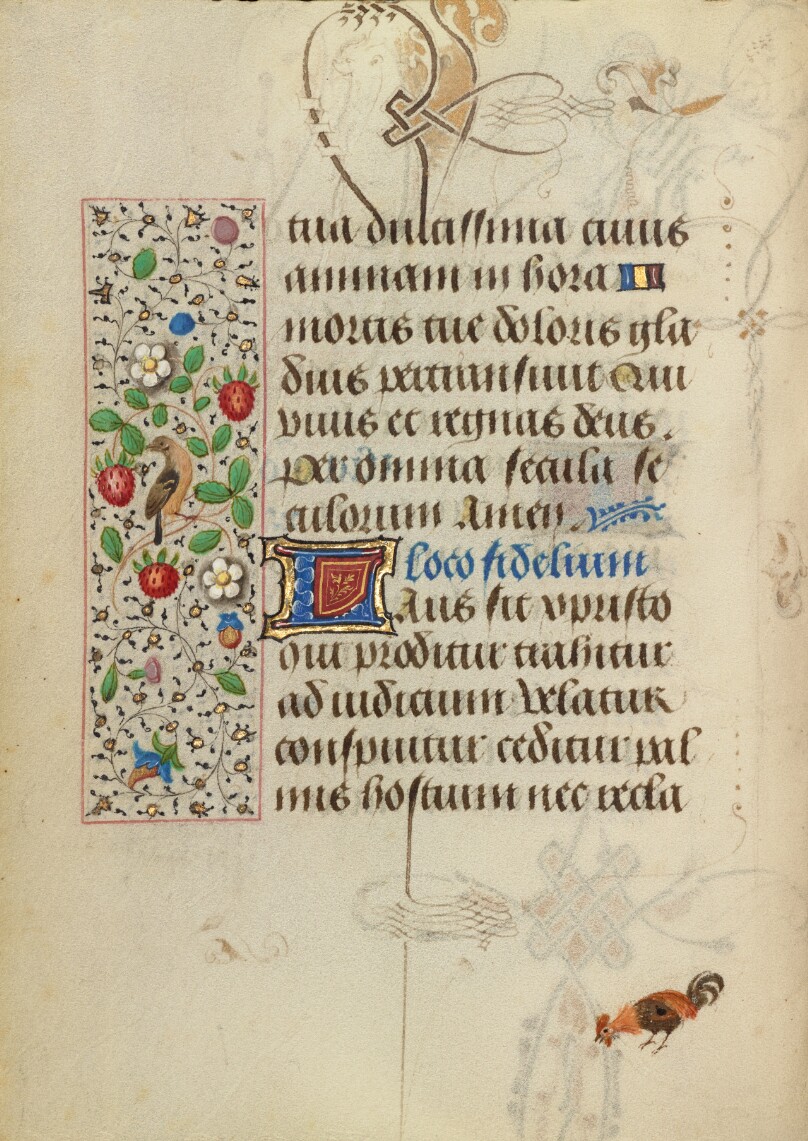 tua dulcissima cuius
animam in hora
mortis tue doloris gla
dius pertransiuit Qui
viuis et regnas deus.
per omnia secula se
culorum Amen
loco fidelium
Laus sit xpristo
qui proditur trahitur
ad iudicium Velatur
conspuitur ceditur pal
mis hostium nec recla